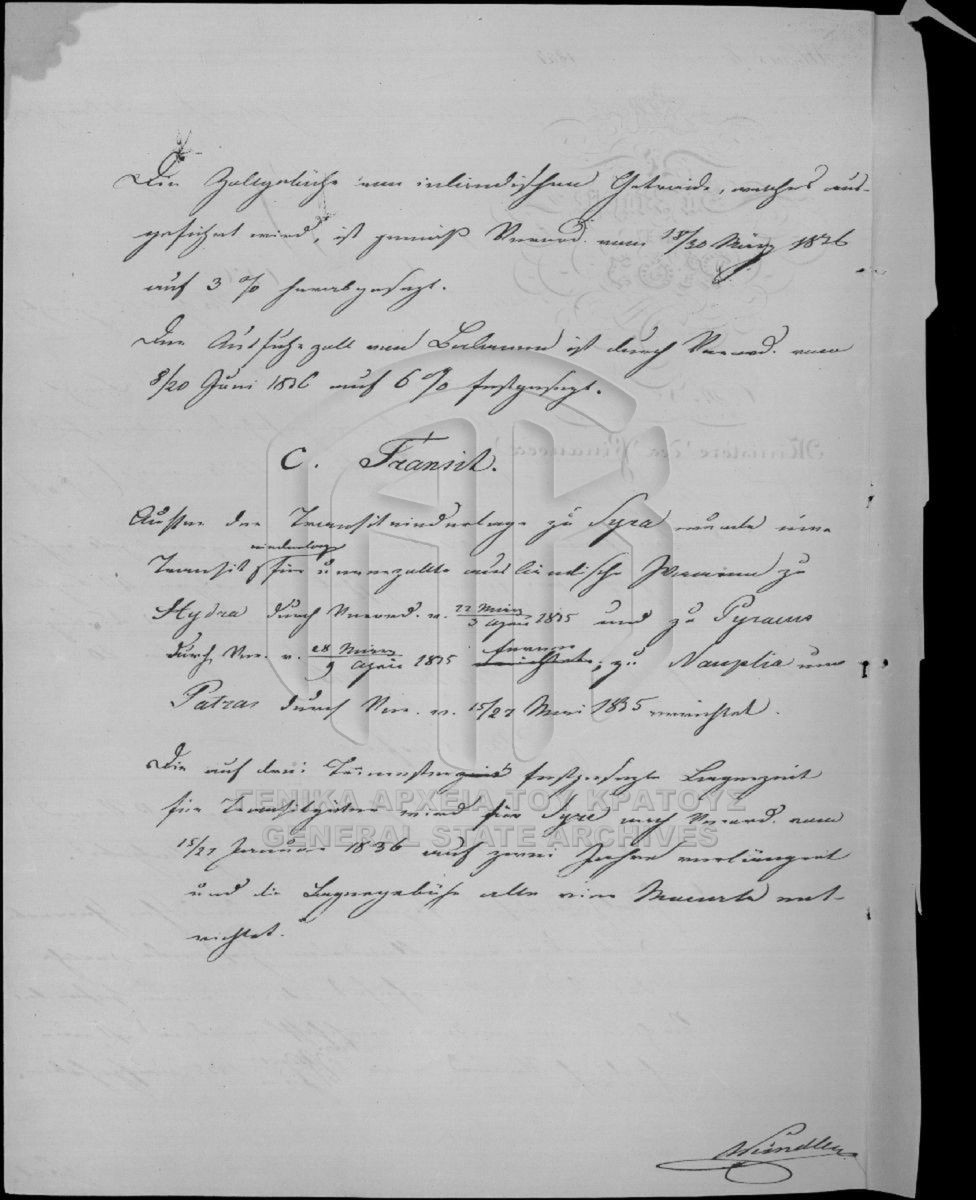 Die Zollgebühr von inländischem Getraide, welches aus-
geführt wird, ist gemäß Verord. vom 18/30 März 1836
auf 3 % herabgesezt.
Der Ausfuhrzoll von ist durch Verord. vom
8/20 Juni 1836 auf 6 % festgesezt.
C. Transit.
Außer der Transitniederlage zu Syra wurde eine
niederlage
Transit für unverzollte ausländische Waaren zu
Hydra durch Verord. v. 22 März/3 April 1835 und zu Pyraeus
durch Ver. v. 28 März/9 April 1835 ferner zu Nauplia und
Patras durch Ver. v. 15/27 Mai 1835 errichtet.
Die auf drei Trimester festgesezte Lagerzeit
für Transitgüter wird für Syra nach Verord. vom
15/27 Januar 1836 auf zwei Jahre verlängert
und die Lagergebühr alle vier Monate ent-
richtet.
ΓΕΝΙΚΑ ΑΡΧΕΙΑ ΤΟΥ ΚΡΑΤΟΥΣ
GENERAL STATE ARCHIVES